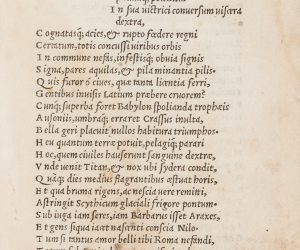 In sua uictrici conuersum uiscera
dextra,
Cognatasq; acies, & rupto fœdere regni
Certatum, totis concussi uiribus orbis
In commune nefas, infestisq; obuia signis
Signa, pares aquilas, & pila minantia pilis.
Quis furor ô ciues, quæ tanta licentia ferri,
Gentibus inuisis Latium præbere cruorem?
Cunq; superba foret Babylon spolianda trophæis
Ausoniis, umbraq; erraret Crassus inulta,
Bella geri placuit nullos habitura triumphos?
Heu quantum terræ potuit, pelagiq; parari
Hoc, quem ciuiles hauserunt sanguine dextræ,
Vnde uenit Titan, & nox ubi sydera condit,
Quaq; dies medius flagrantibus æstuat horis,
Et qua bruma rigens, ac nescia uere remitti,
Astringit Scythicum glaciali frigore pontum.
Sub iuga iam seres, iam Barbarus isset Araxes,
Et gens siqua iacet nascenti conscia Nilo.
Tum si tantus amor belli tibi Roma nefandi,